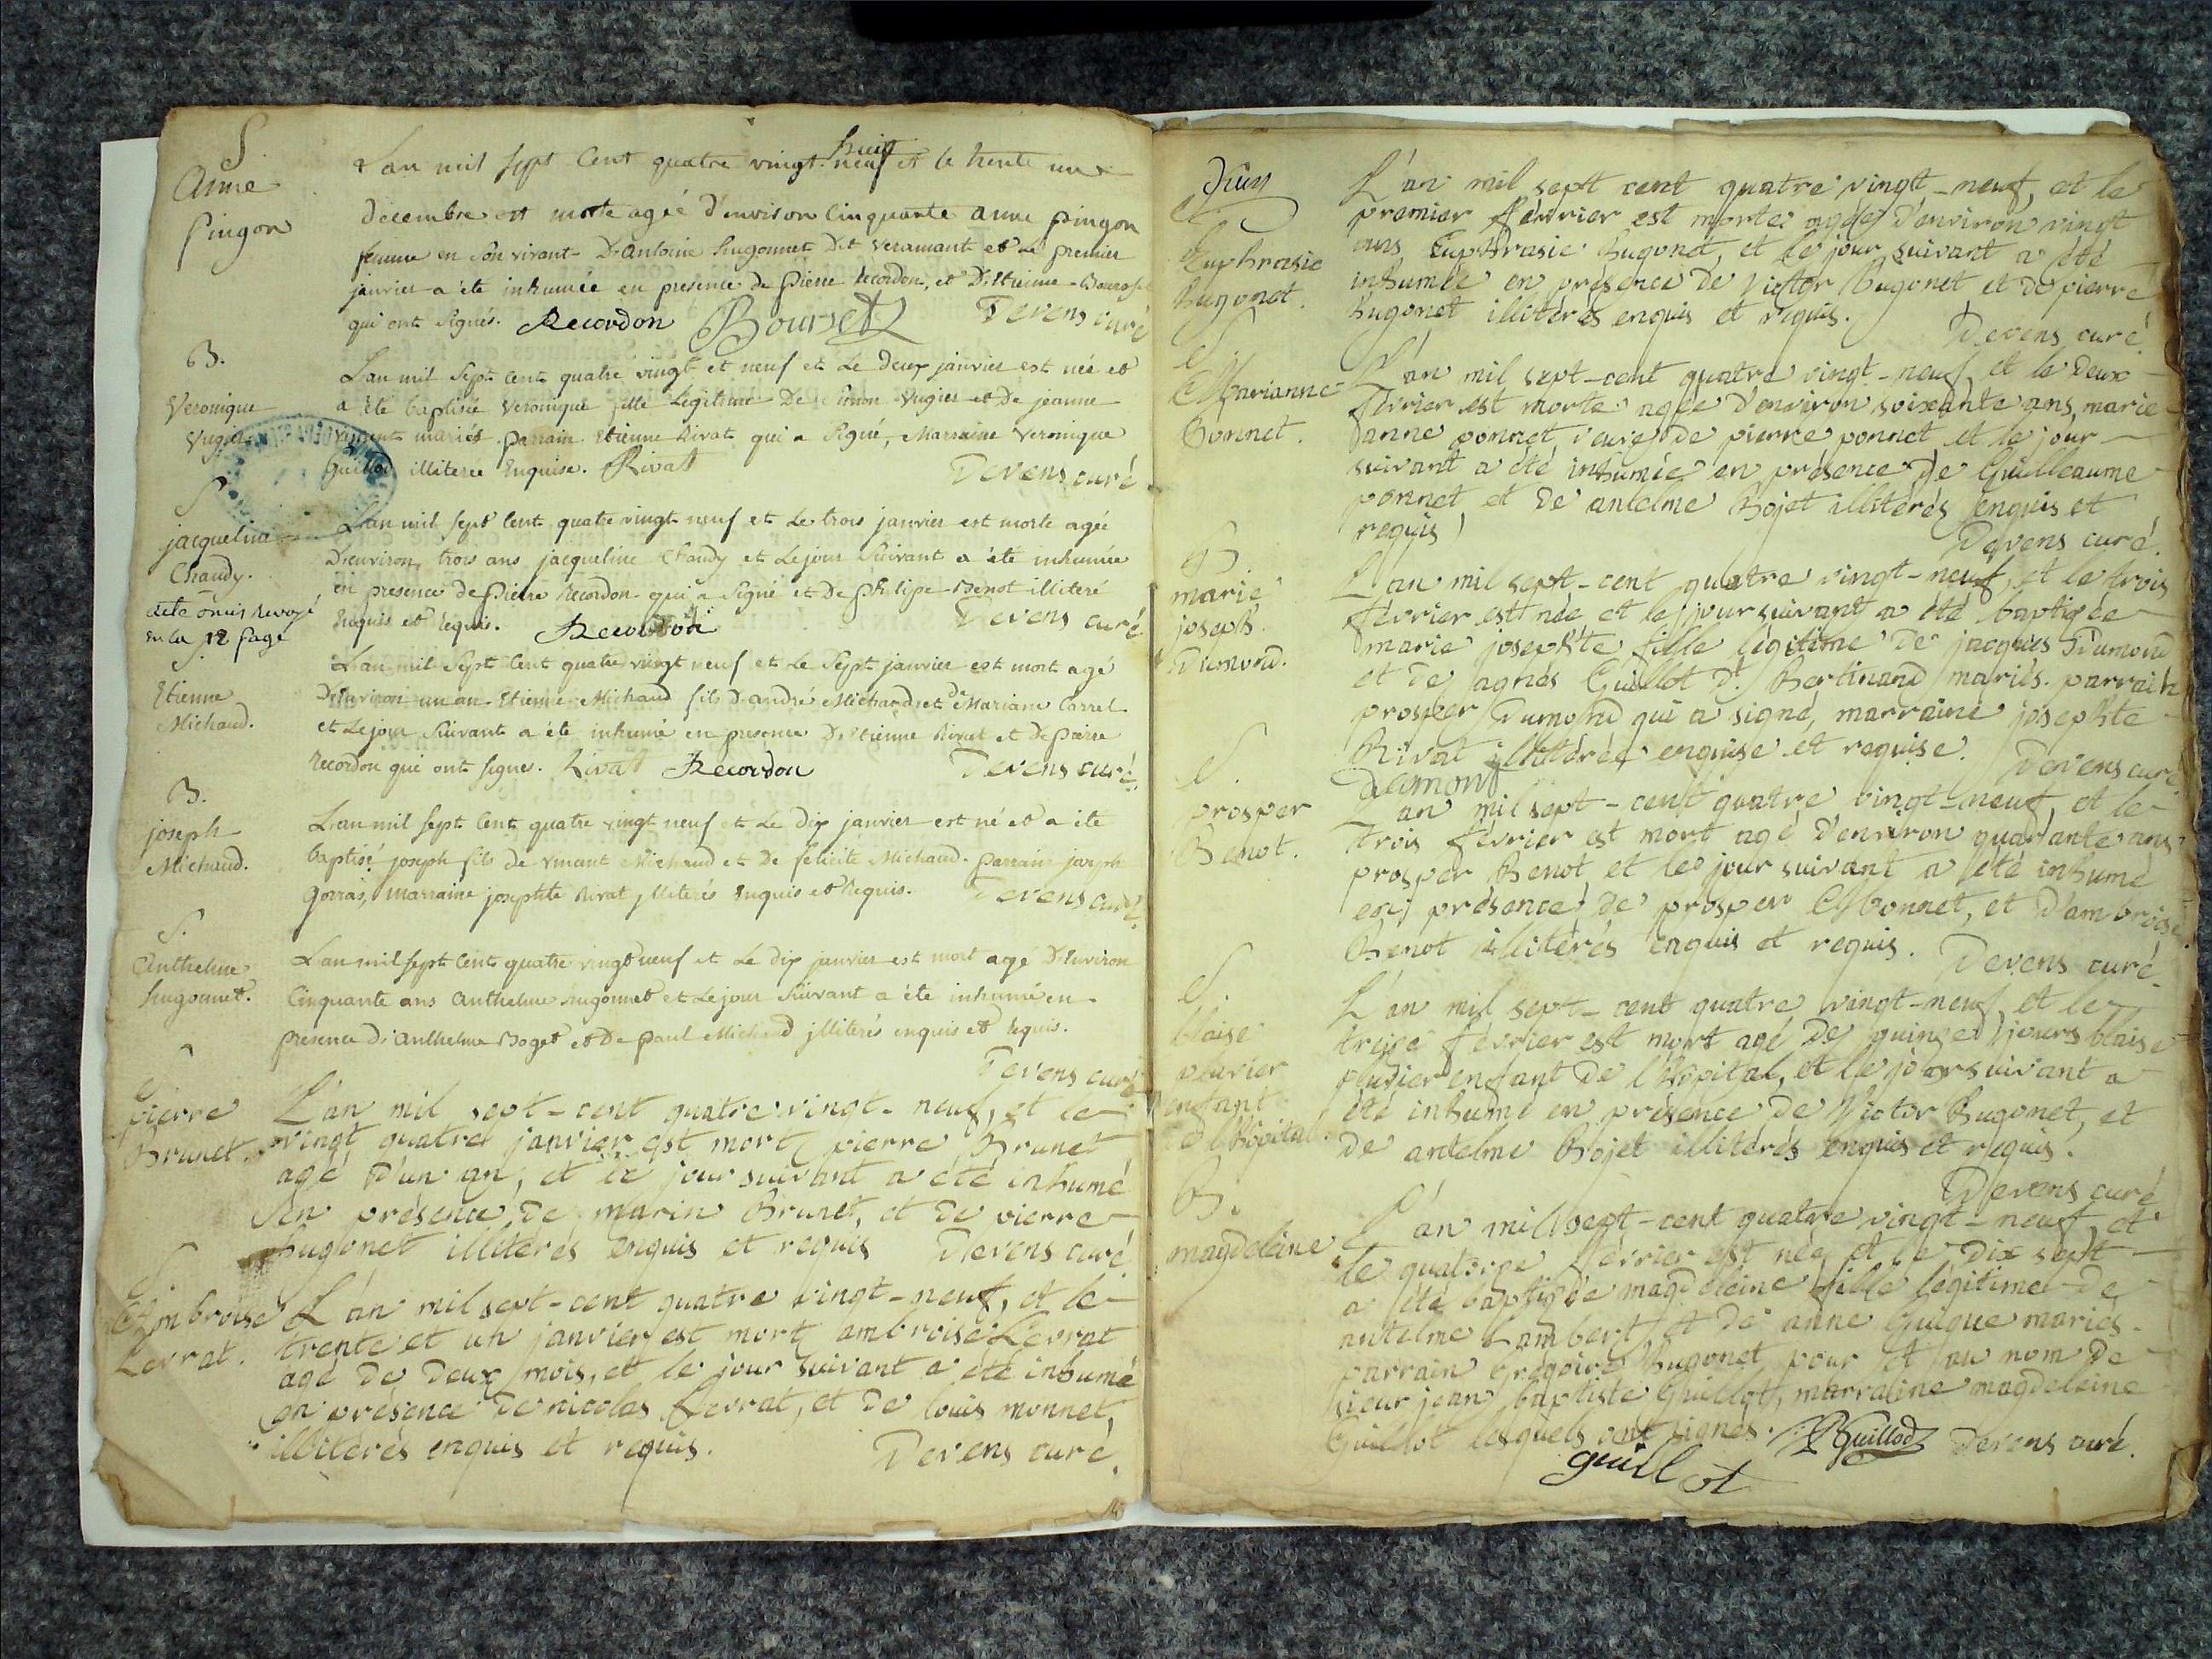 S
Anne
Pingon
L'an mil sept Cent quatre vingt. neuf huit et le trente un
decembre est morte agée d'environ Cinquante anne pingon
femme en Son vivant D'Antoine hugonnet Dit veramant et Le premier
janvier a été inhumée en presence de Pierre Recordon, et D'Etienne
qui ont Signés. Recordon Boursetz Devens curé
B.
Veronique
Vugier
L'an mil Sept Cent quatre vingt et neuf et Le deux janvier est née et
a été baptisée veronique fille Legitime De Simon Vugier et De jeanne
mariés. parrain Etienne Rivat qui a Signé, Marraine veronique
illiterée Enquise. Rivat Devens curé
S
jacqueline
Chaudy.
L'an mil sept Cent quatre vingt neuf et Le trois janvier est morte agée
D'environ trois ans jacqueline Chaudy et Le jour Suivant a été inhumée
en presence de Pierre Recordon qui a Signé et De philipe Benot illiteré
Enquis et Requis. Recordon Devens curé
En la 12 page
S.
Etienne
Michaud.
L'an mil Sept Cent quatre vingt neuf et Le Sept janvier est mort agé
D'Environ un an Etienne Michaud fils D'andré Michaud et de Mariane Carrel
et Le jour Suivant a été inhumé en presence D'Etienne Rivat et De Pierre
Recordon qui ont signé. Rivat Recordon Devens curé.
B.
joseph
Michaud.
L'an mil sept Cent quatre vingt neuf et Le dix janvier est né et a été
baptisé joseph fils de vincent Michaud et De felicité Michaud. parrain joseph
Gorras, Marraine josephte Rivat illiterés Enquis et Requis. Devens curé.
S.
Anthelme
hugonnet.
L'an mil sept Cent quatre vingt neuf et Le dix janvier est mort agé D'Environ
Cinquante ans Anthelme hugonnet et Le jour Suivant a été inhumé en
presence D'Anthelme Boget et De paul Michaud illiterés enquis et Requis.
Devens curé
S
pierre
Brunet.
L'an mil sept-cent quatre vingt-neuf, et le
vingt quatre janvier est mort pierre Brunet
agé d'un an, et le jour suivant a été inhumé
en présence de marin Brunet, et de pierre
hugonet illiterés enquis et requis Devens curé.
S.
Ambroise
Levrat.
L'an mil sept-cent quatre vingt-neuf, et le
trente et un janvier est mort ambroise Levrat
agé de deux mois, et le jour suivant a été inhumé
en présence de nicolas Levrat, et de louis monnet,
illiterés enquis et requis. Devens curé.
S
Euphrasie
hugonet.
L'an mil sept cent quatre vingt-neuf, et le
premier février est morte agée d'environ vingt
ans Euphrasie hugonet, et le jour suivant a été
inhumée en présence de Victor hugonet et de pierre
hugonet illiterés enquis et requis.
Devens curé.
S
Marianne
Ponnet.
L'an mil sept-cent quatre vingt-neuf, et le deux
février est morte agée d'environ soixante ans, marie
anne ponnet, veuve de pierre ponnet et le jour
suivant a été inhumée en présence de Guilleaume
ponnet et de antelme Bojet illiterés enquis et
requis
Devens curé.
B.
marie
joseph.
Dumond.
L'an mil sept-cent quatre vingt-neuf, et le trois
février est née et le jour suivant a été baptisée
marie josephte fille légitime de jacques Dumond
et de agnés Guillot dt. Bertinand mariés. parrain
prosper Dumond qui a signé, marraine josephte
Rivat illitérée enquise et requise. Devens curé
demond
S.
prosper
Benot.
L'an mil sept-cent quatre vingt-neuf, et le
trois février est mort agé d'environ quarante ans
prosper Benot et le jour suivant a été inhumé
en présence de prosper Monnet, et d'ambroise
Benot illitérés enquis et requis. Devens curé.
S.
blaise
pluvier
enfant
de l'hôpital.
L'an mil sept-cent quatre vingt-neuf, et le
treize février est mort agé de quinze jours blaise
pluvier enfant de l'hôpital, et le jour suivant a
été inhumé en présence de Victor hugonet, et
de antelme Bojet illitérés enquis et requis.
Devens curé
B.
magdeleine
L'an mil sept-cent quatre vingt-neuf, et
le quatorze février est née, et le dix sept
a été baptisée magdeleine fille légitime de
antelme Lambert, et de anne Guigue mariés.
parrain Grégoire hugonet pour et au nom de
sieur jean baptiste Guillot, marraine magdeleine
Guillot lesquels ont signés. Guillod Devens curé.
guillot